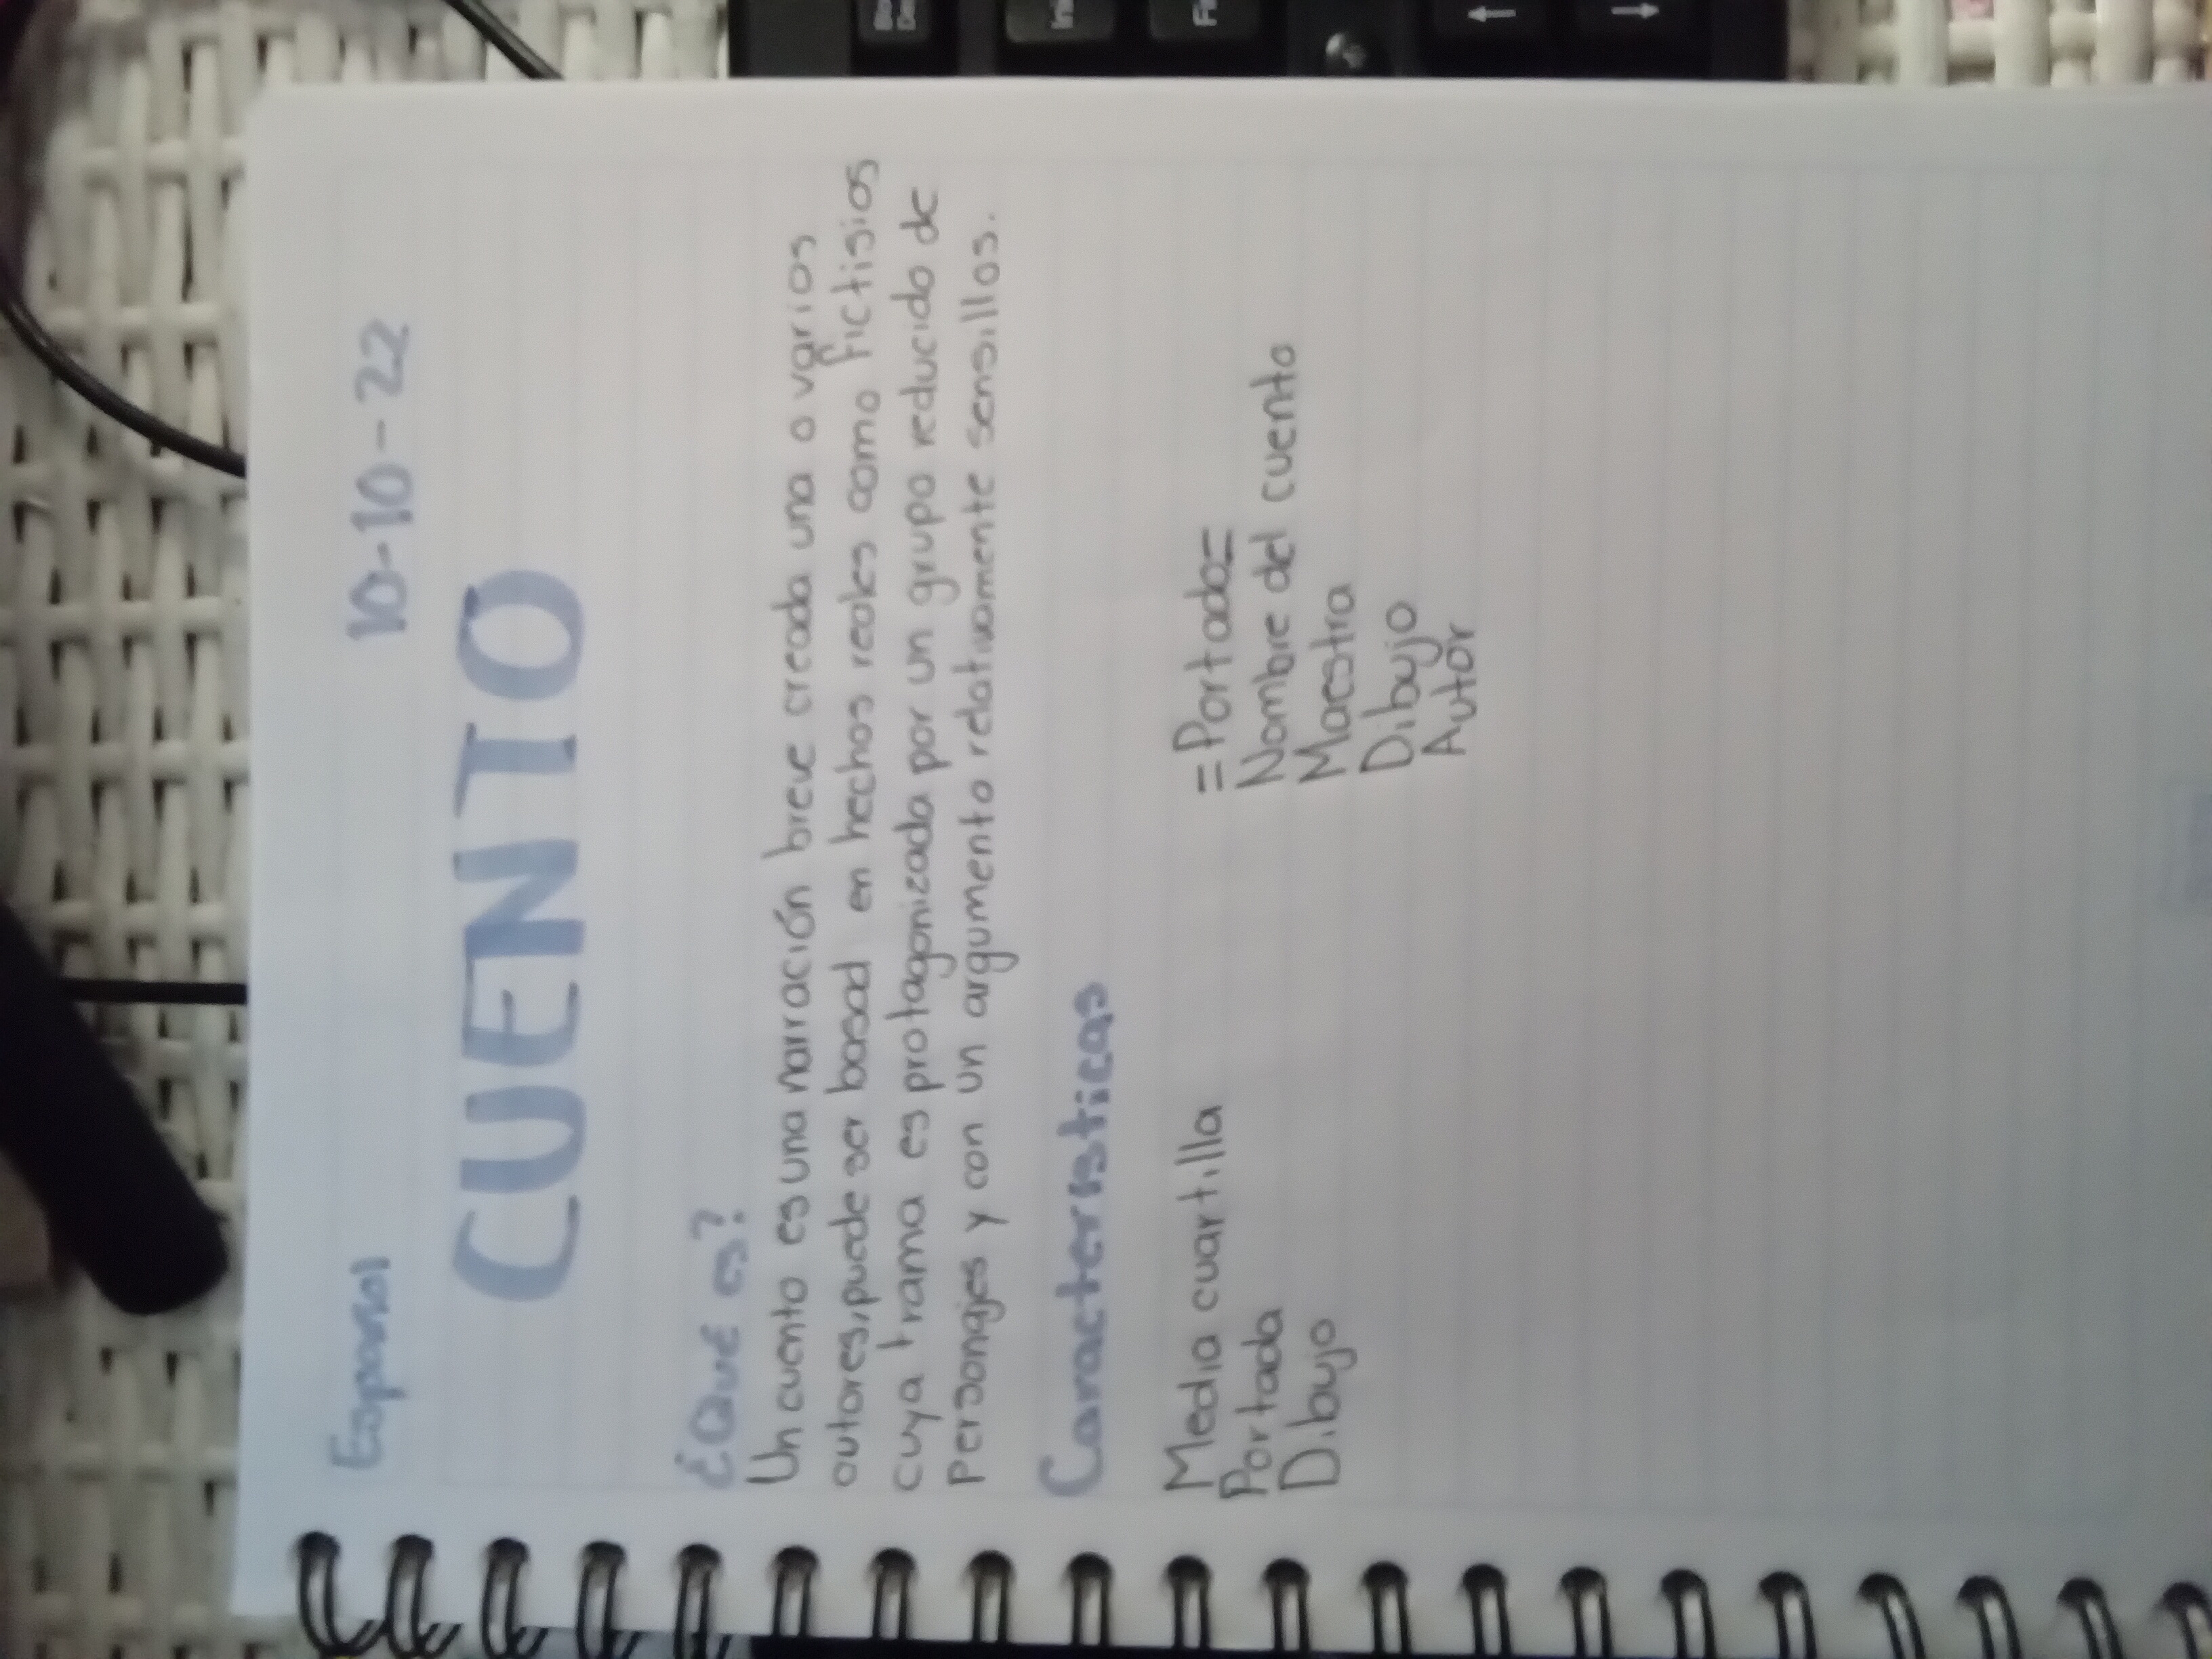 Español 10-10-22
CUENTO
¿Que es?
Un cuento es una narración breve creada una o varios
autores, puede ser basad en hechos reales como fictisios
cuya trama es protagonizada por un grupo reducido de
personajes y con un argumento relativamente sensillos.
Caracteristicas
Media cuartilla
Portada
Dibujo
=Portada=
Nombre del cuento
Maestra
Dibujo
Autor